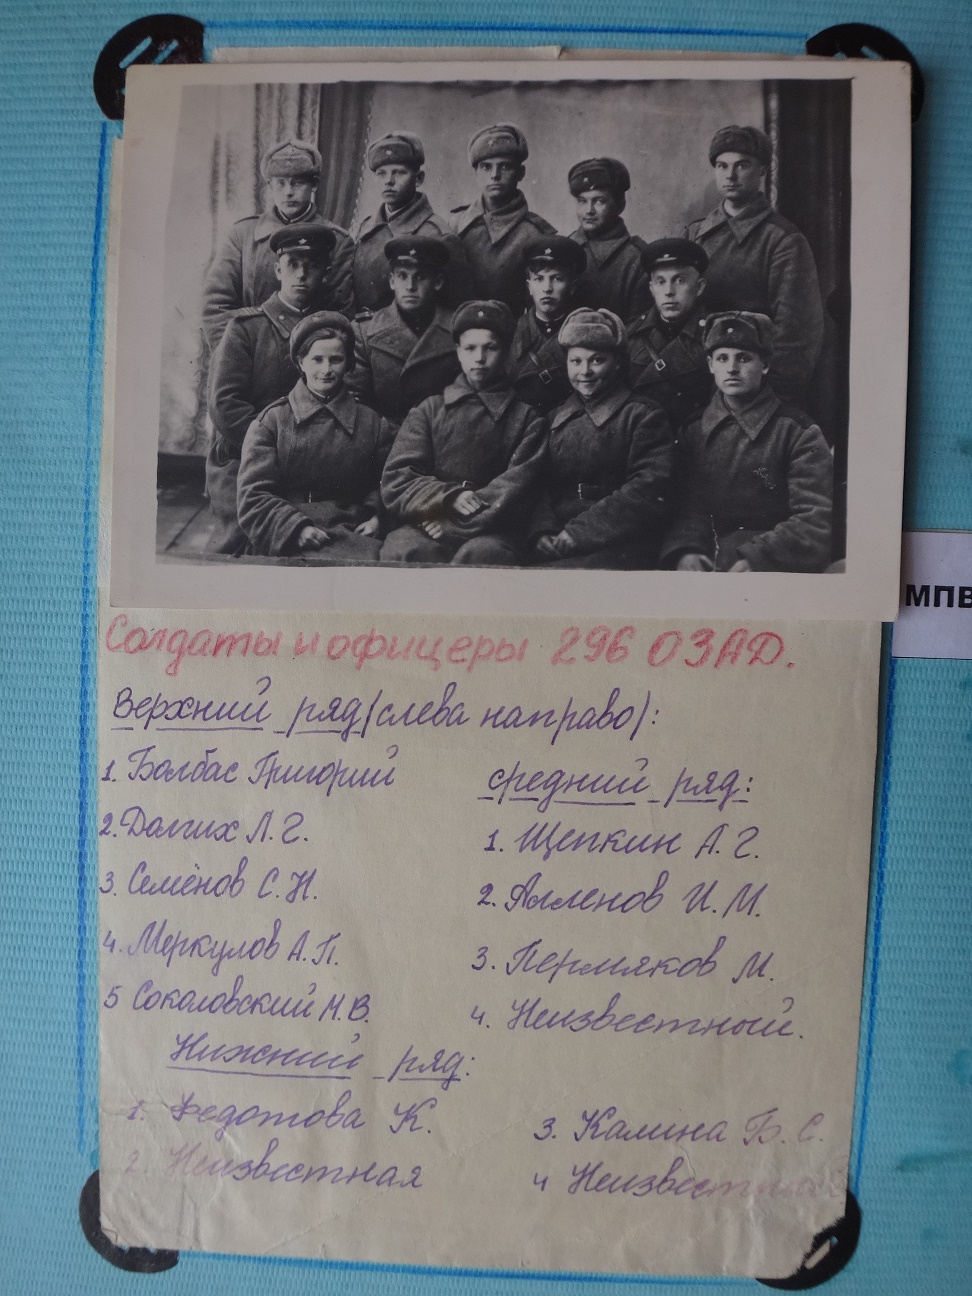 МПВ
Солдаты и офицеры 296 ОЗАД.
Верхний ряд (слева направо):
1. Болбас Григорий
2. Долгих Л. Г.
3. Семёнов С. Н.
4. Меркулов А. П.
5 Сокаловский Н. В.
средний ряд:
1. Щепкин А. Г.
2. Алленов И. М.
3. Пермяков М.
4. Неизвестный.
Нижний ряд:
1. Федотова К.
2. Неизвестная
3. Калина Б. С.
4 Неизвестный